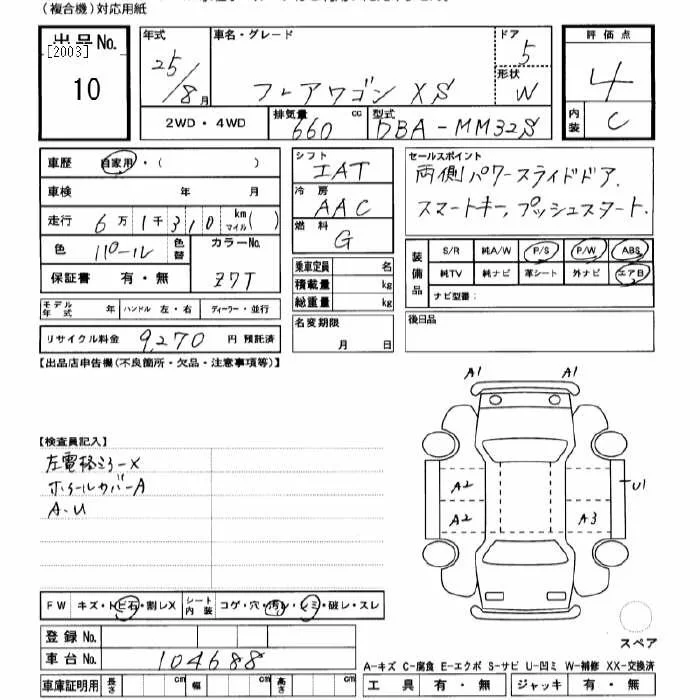 (複合機)対応用紙
出品No. [2003] 10
年式 25/8月
車名・グレード フレアワゴン XS
ドア 5
形状 W
評価点 4
内装 C
2WD・4WD
排気量 660 cc
型式 DBA-MM32S
車歴 自家用・( )
車検 年 月
走行 6万1千310 km マイル( )
色 パール 色替
カラーNo. Z7T
保証書 有・無
モデル年式 年
ハンドル 左・右
ディーラー・並行
リサイクル料金 9,270 円 預託済
シフト IAT
冷房 AAC
燃料 G
乗車定員 名
積載量 kg
総重量 kg
名変期限 月 日
セールスポイント
両側パワースライドドア.
スマートキー, プッシュスタート.
装備品
S/R 純A/W P/S P/W ABS
純TV 純ナビ 革シート 外ナビ エアB
ナビ型番:
後日品
【出品店申告欄(不良箇所・欠品・注意事項等)】
【検査員記入】
左電格ミラーX
ホイールカバーA
A・U
A1 A1
A2
U1
A2 A3
FW キズ・トビ石・割レX
シート内装 コゲ・穴・汚レ・シミ・破レ・スレ
登録No.
車台No. 104688
スペア
A-キズ C-腐食 E-エクボ S-サビ U-凹ミ W-補修 XX-交換済
車庫証明用 長さ cm 幅 cm 高さ cm
工具 有・無 ジャッキ 有・無